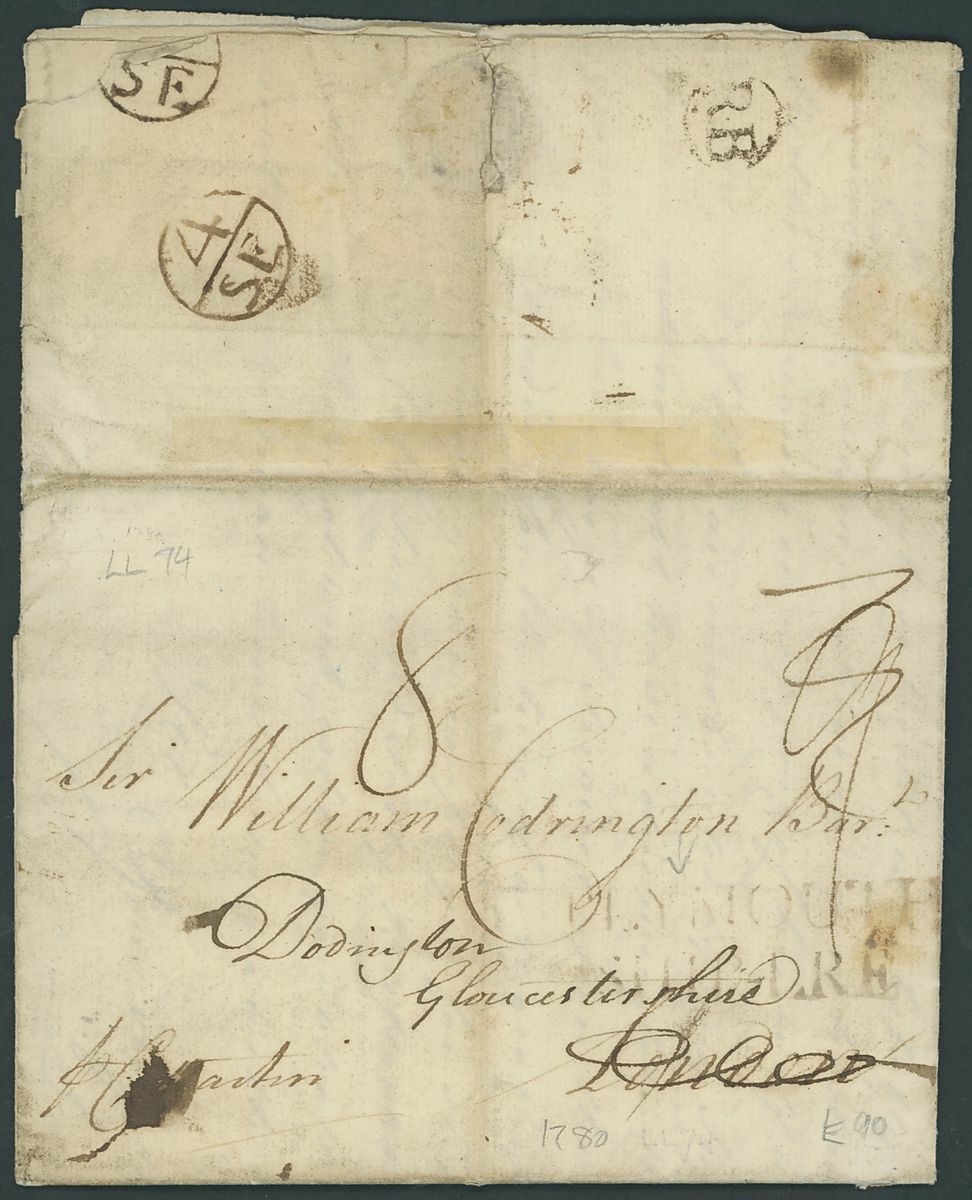 SE
RB
4
SE
1780
LL 74
8
Sir William Codrington Bar.t
PLYMOUTH
Dodington
Gloucestershire
London
1780 LL 74
£90